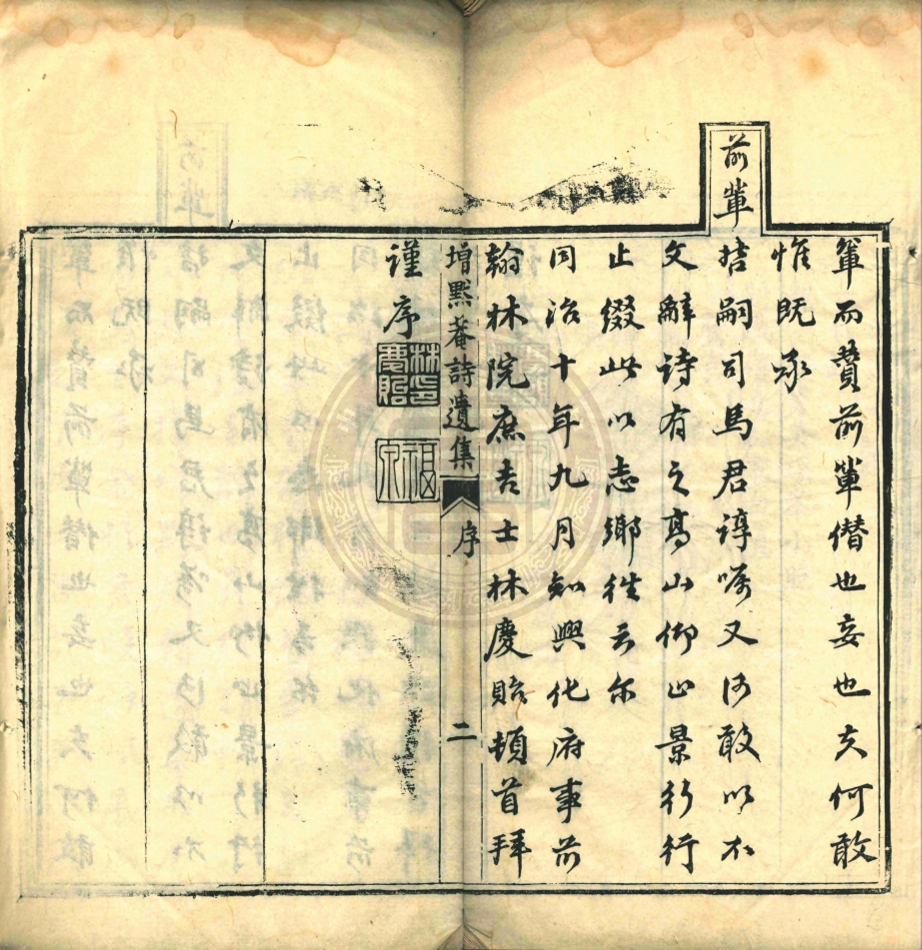 輩而贊前輩僭也妄也夫何敢
惟既承
前輩哲嗣司馬君諄嘱又何敢以不
文辭詩有之高山仰止景行行
止綴此以志鄉徃云尔
同治十年九月知興化府事前
翰林院庶吉士林慶貽頓首拜
增默菴詩遺集 序 二
謹序
林印慶貽